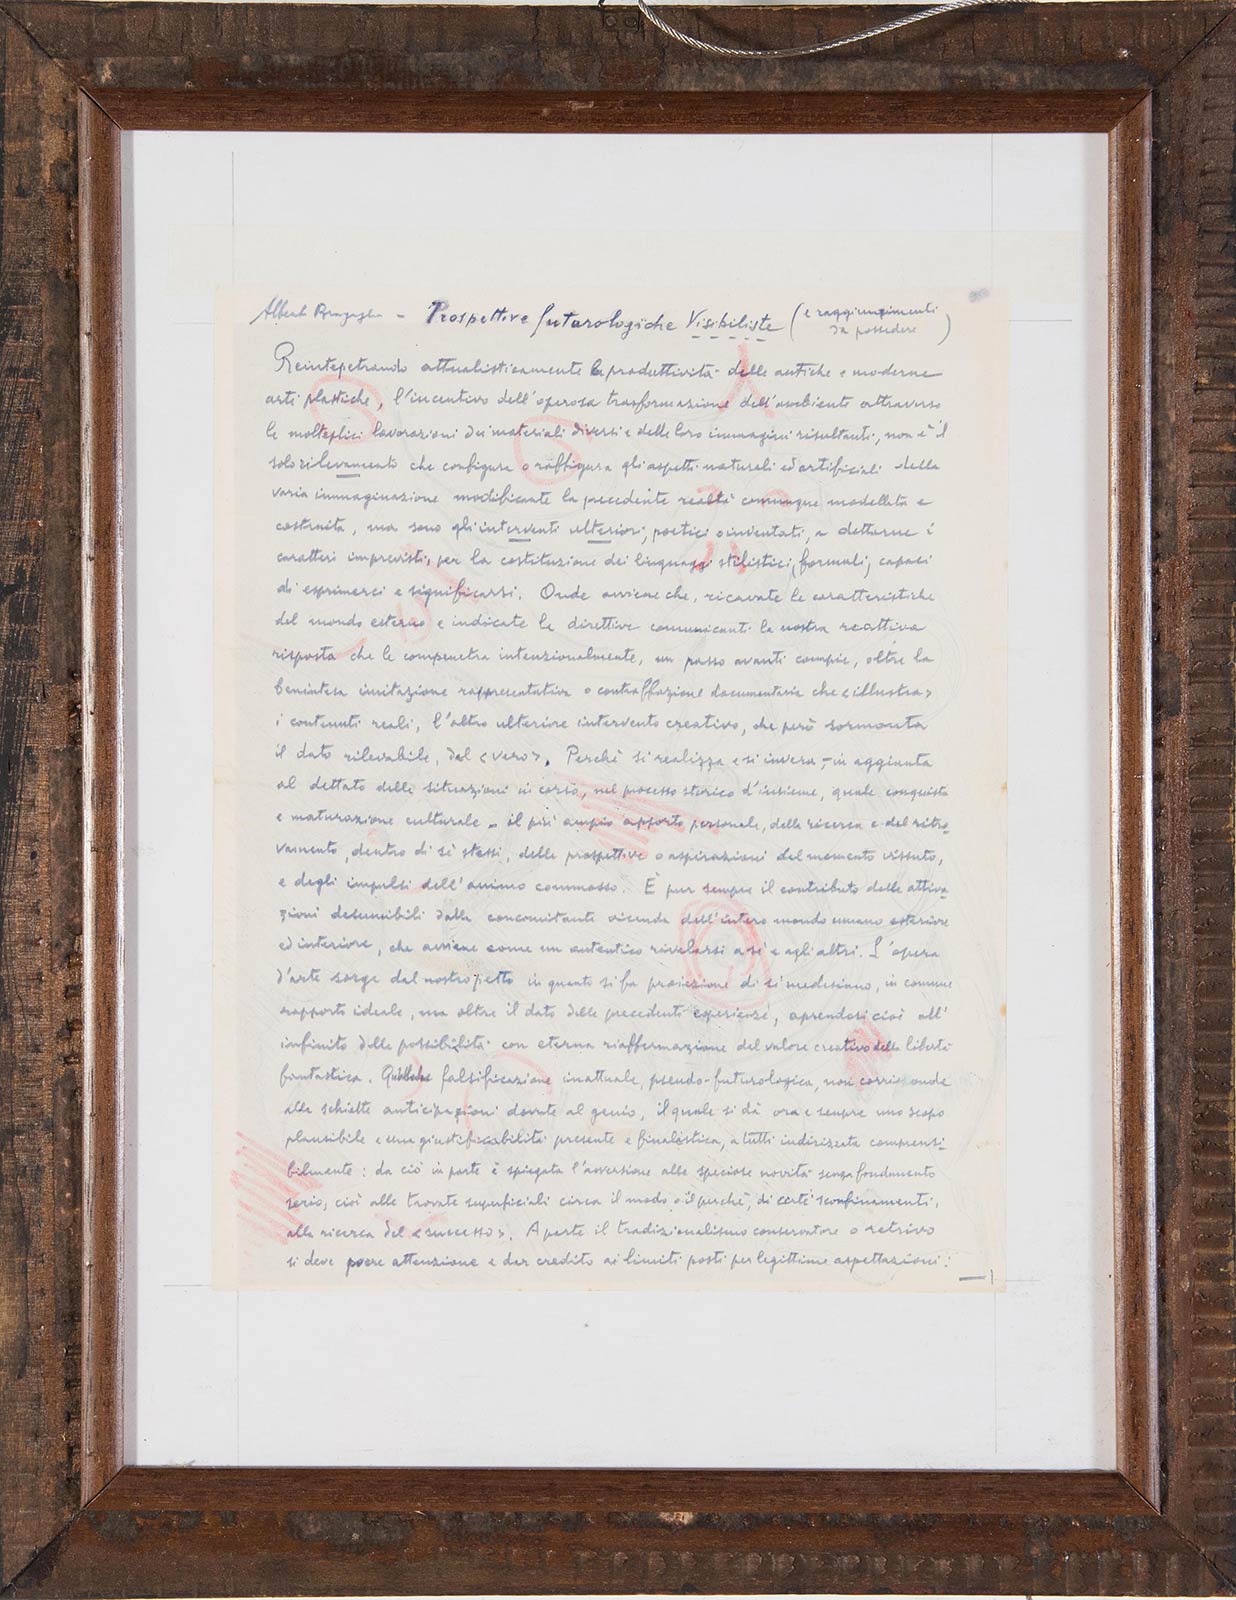 Albert Bragaglia - Prospettive futurologiche Visibiliste (e raggiungimenti
da possedere)
Reintepetrando attualisticamente la produttività delle antiche e moderne
arti plastiche, l'incentivo dell'operosa trasformazione dell'ambiente attraverso
le molteplici lavorazioni dei materiali diversi e delle loro immagini risultanti, non è il
solo rilevamento che configura o raffigura gli aspetti naturali ed artificiali della
varia immaginazione modificante la precedente realtà comunque modellata e
costruita, ma sono gli interventi ulteriori, poetici o inventati, a dettarne i
caratteri imprevisti, per la costituzione dei linguaggi stilistici, (formali) capaci
di esprimerci e significarsi. Onde avviene che, ricavate le caratteristiche
del mondo esterno e indicate le direttive comunicanti la nostra reattiva
risposta che le compenetra intenzionalmente, un passo avanti compie, oltre la
benintesa imitazione rappresentativa o contraffazione documentaria che <illustra>
i contenuti reali, l'altro ulteriore intervento creativo, che però sormonta
il dato rilevabile, dal <vero>. Perchè si realizza e si invera, - in aggiunta
al dettato delle situazioni in corso, nel processo storico d'insieme, quale conquista
e maturazione culturale - il più ampio apporto personale, della ricerca e del ritro-
vamento, dentro di sè stessi, delle prospettive o aspirazioni del momento vissuto,
e degli impulsi dell'animo commosso. È pur sempre il contributo dalle attiva-
zioni desumibili dalla concomitante vicenda dell'intero mondo umano esteriore
ed interiore, che avviene come un autentico rivelarsi a sè e agli altri. L'opera
d'arte sorge dal nostro petto in quanto si fa proiezione di sè medesimo, in comune
rapporto ideale, ma oltre il dato delle precedenti esperienze, aprendosi cioè all'
infinito delle possibilità con eterna riaffermazione del valore creativo della libertà
fantastica. Qualche falsificazione inattuale, pseudo-futurologica, non corrisponde
alle schiette anticipazioni dovute al genio, il quale si dà ora e sempre uno scopo
plausibile e una giustificabilità presente e finalistica, a tutti indirizzata comprensi-
bilmente: da ciò in parte è spiegata l'avversione alle speciose novità senza fondamento
serio, cioè alle trovate superficiali circa il modo o il perchè, di certi sconfinamenti,
alla ricerca del <successo>. A parte il tradizionalismo conservatore o retrivo
si deve porre attenzione e dar credito ai limiti posti per legittime aspettazioni: